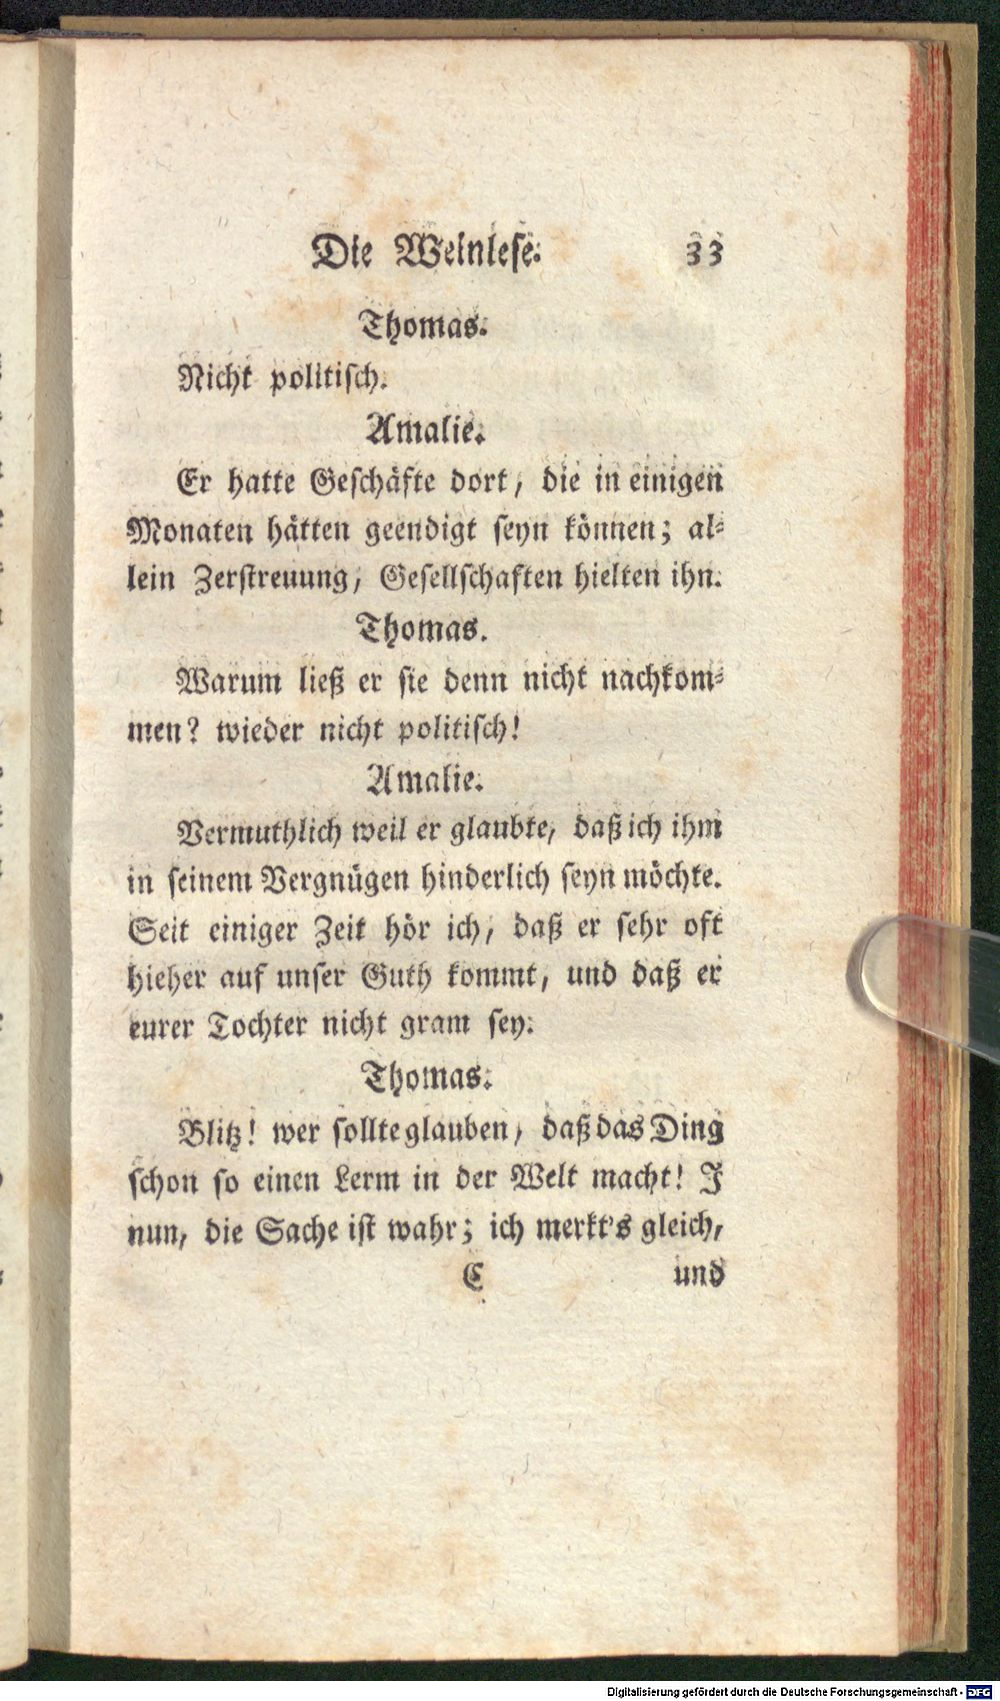 Die Weinlese. 33
Thomas.
Nicht politisch.
Amalie.
Er hatte Geschäfte dort, die in einigen
Monaten hätten geendigt seyn können; al-
lein Zerstreuung, Gesellschaften hielten ihn.
Thomas.
Warum ließ er sie denn nicht nachkom-
men? wieder nicht politisch!
Amalie.
Vermuthlich weil er glaubte, daß ich ihm
in seinem Vergnügen hinderlich seyn möchte.
Seit einiger Zeit hör ich, daß er sehr oft
hieher auf unser Guth kommt, und daß er
eurer Tochter nicht gram sey.
Thomas.
Blitz! wer sollte glauben, daß das Ding
schon so einen Lerm in der Welt macht! J
nun, die Sache ist wahr; ich merkt's gleich,
C und
Digitalisierung gefördert durch die Deutsche Forschungsgemeinschaft - DFG